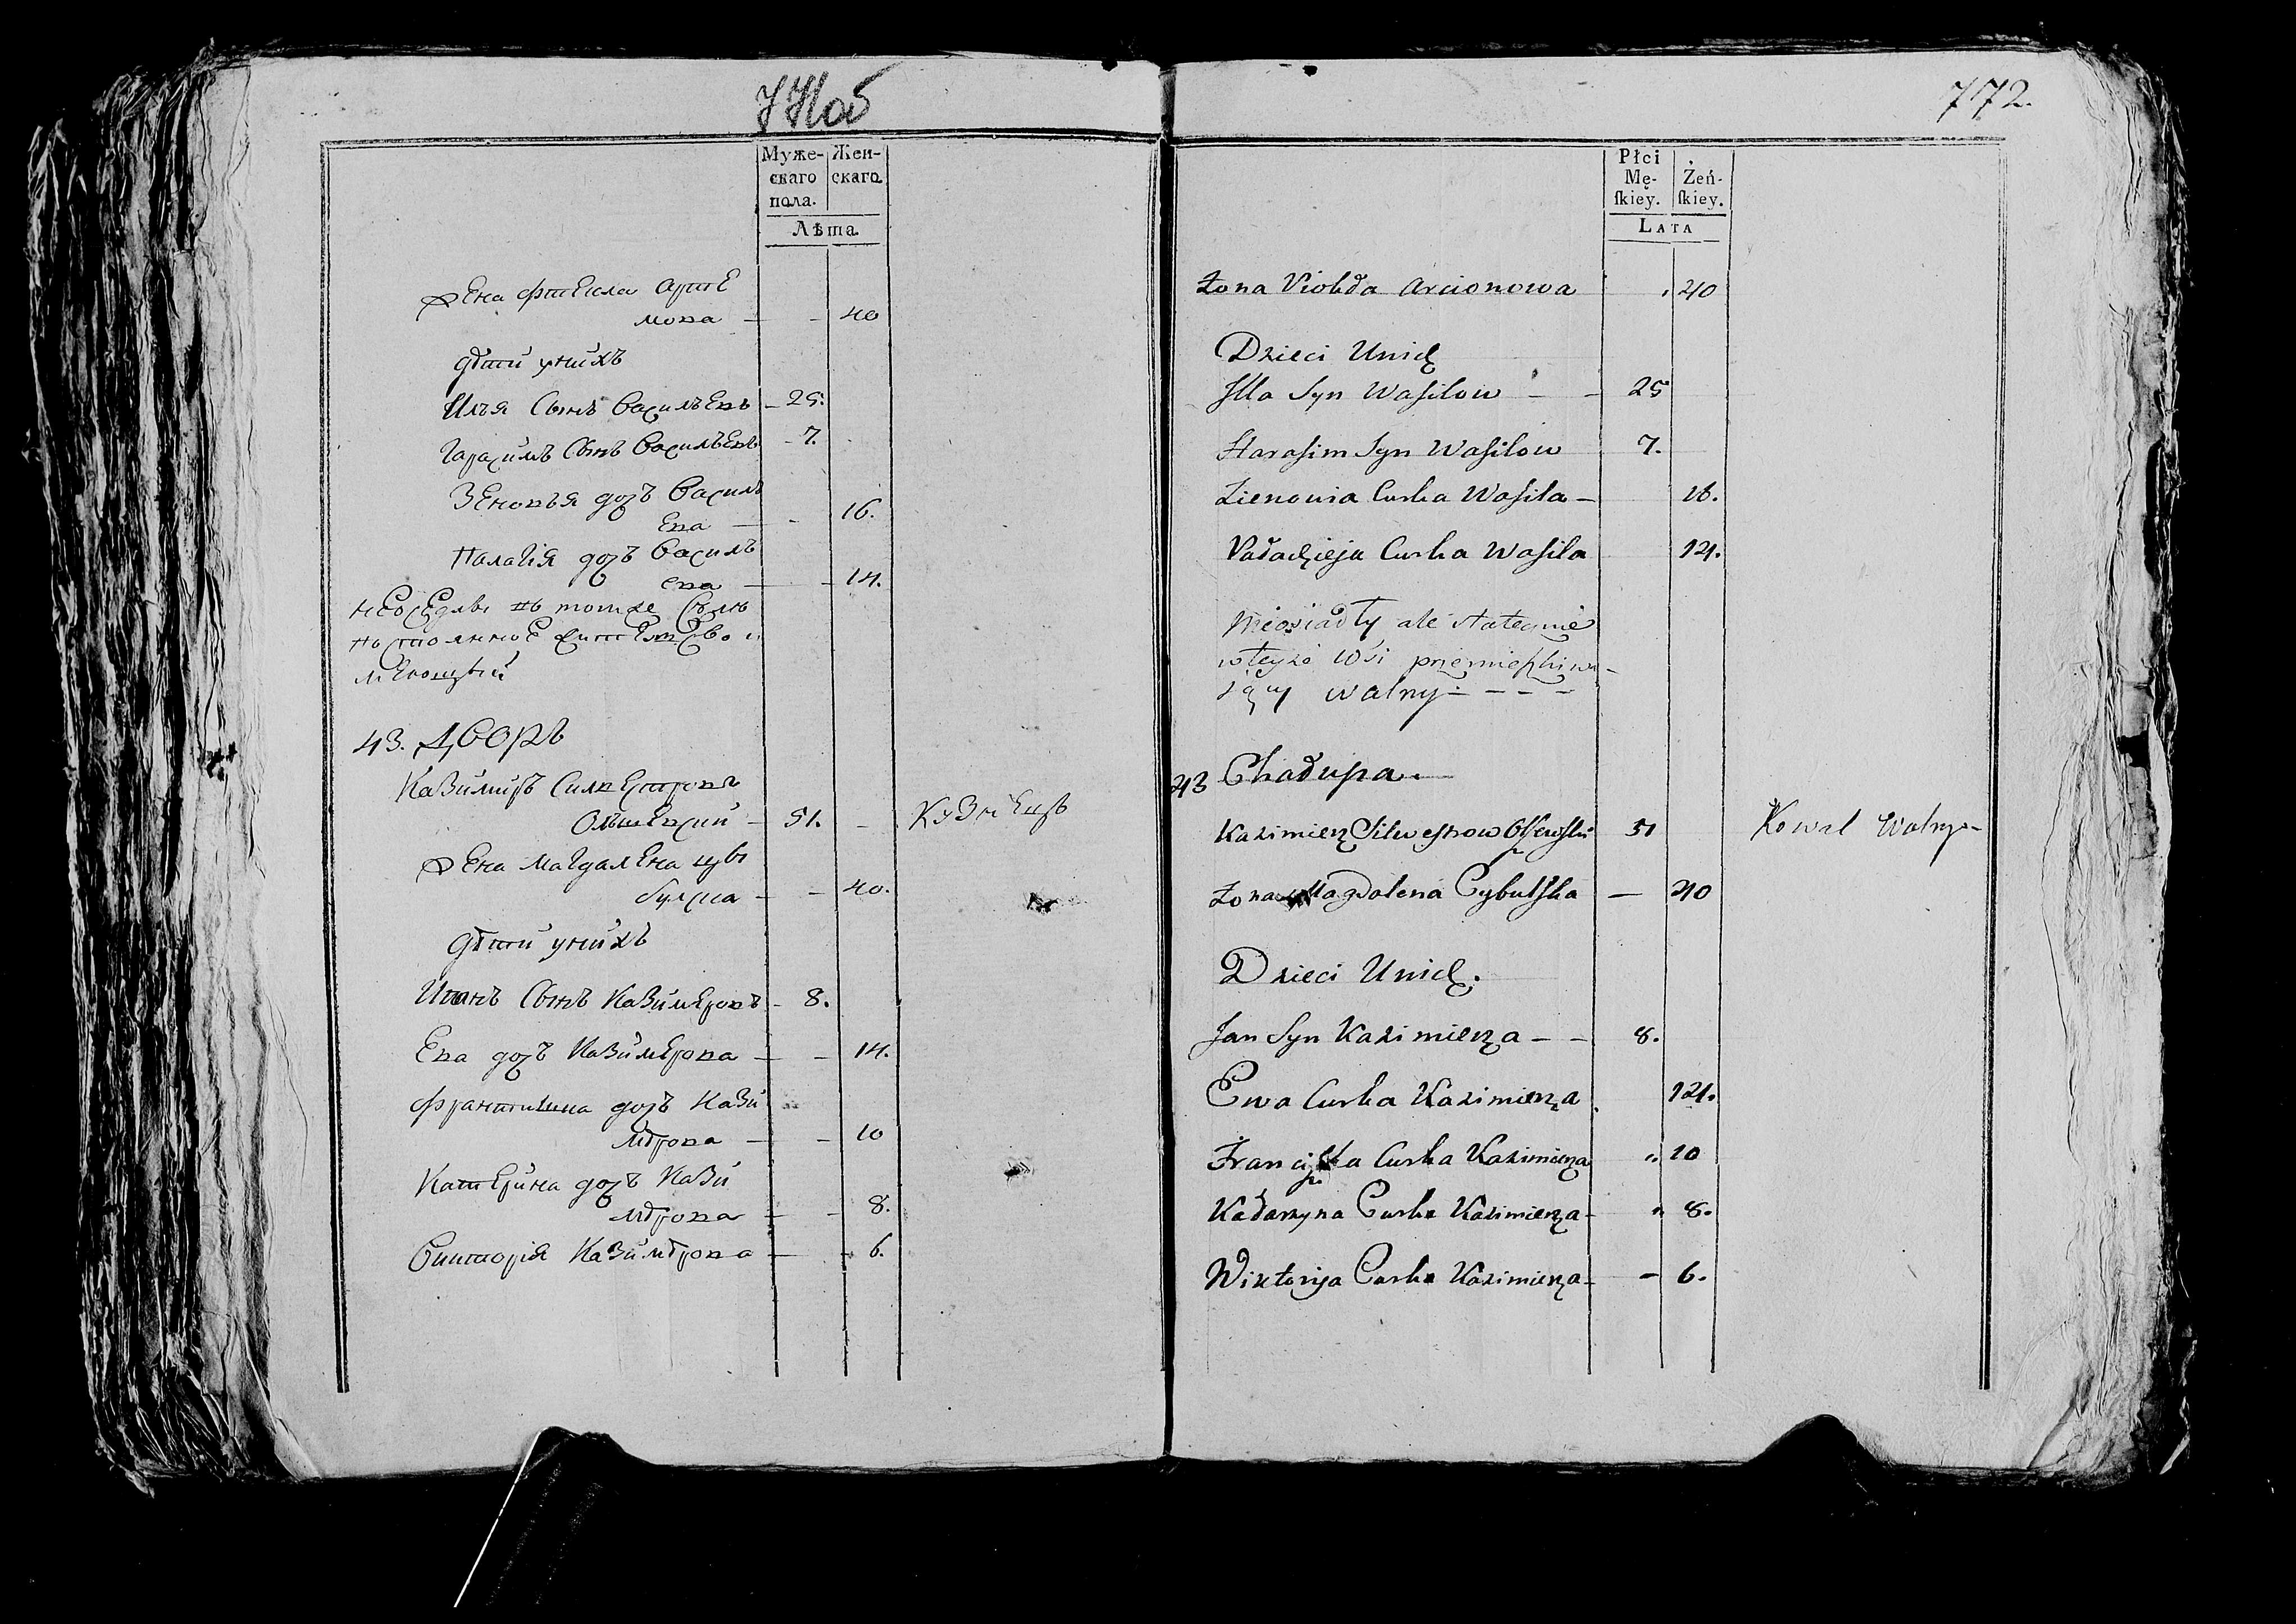 Муже-
скаго
пола.
Жен-
скаго
Лѣта
Жена Фтекла Арте
мова — — 40
дѣти унихъ
Илья Сынъ Василъевъ — 25.
Гарасимъ Сынъ Василъевъ — 7.
Зеновъя доч Василъ
ева — - 16.
Палагія доч Василъ
ева — - 14.
43. Дворъ
Казимиръ Силвестровъ
Олшевский — 51. — Кузнецъ
Жена Магдалена цы
булска — — 40.
дѣти унихъ
Иванъ Сынъ Казимеровъ — 8.
Ева доч Казимерова — — 14.
Францишка доч Кази
мѣрова — — 10
Катерина доч Кази
мѣрова — - 8.
Викторія Казимѣрова — - 6.
772.
Płci
Mę-
ſkiey.
Żeń-
ſkiey.
LATA
Żona Arcionowa 40
Dzieci Unich
Illa Syn Wasilow — — 25
Harasim Syn Wasilow 7.
Zienowia Curka Wasila — 16.
Curka Wasila 14.
Nieosiadły ale statecznie
wteyże Wsi przemieszkiwa-
iący Wolny — — —
43 Chałupa. —
Kazimierz Silwestrow Olszewski 51 Kowal Wolny —
Żona Magdalena Cybulska — 40
Dzieci Unich.
Jan Syn Kazimierza — — 8.
Ewa Curka Kazimierza 14.
Franciszka Curka Kazimierza " 10
Katarzyna Curka Kazimierza - " 8.
Wiktorya Curka Kazimierza - — 6.